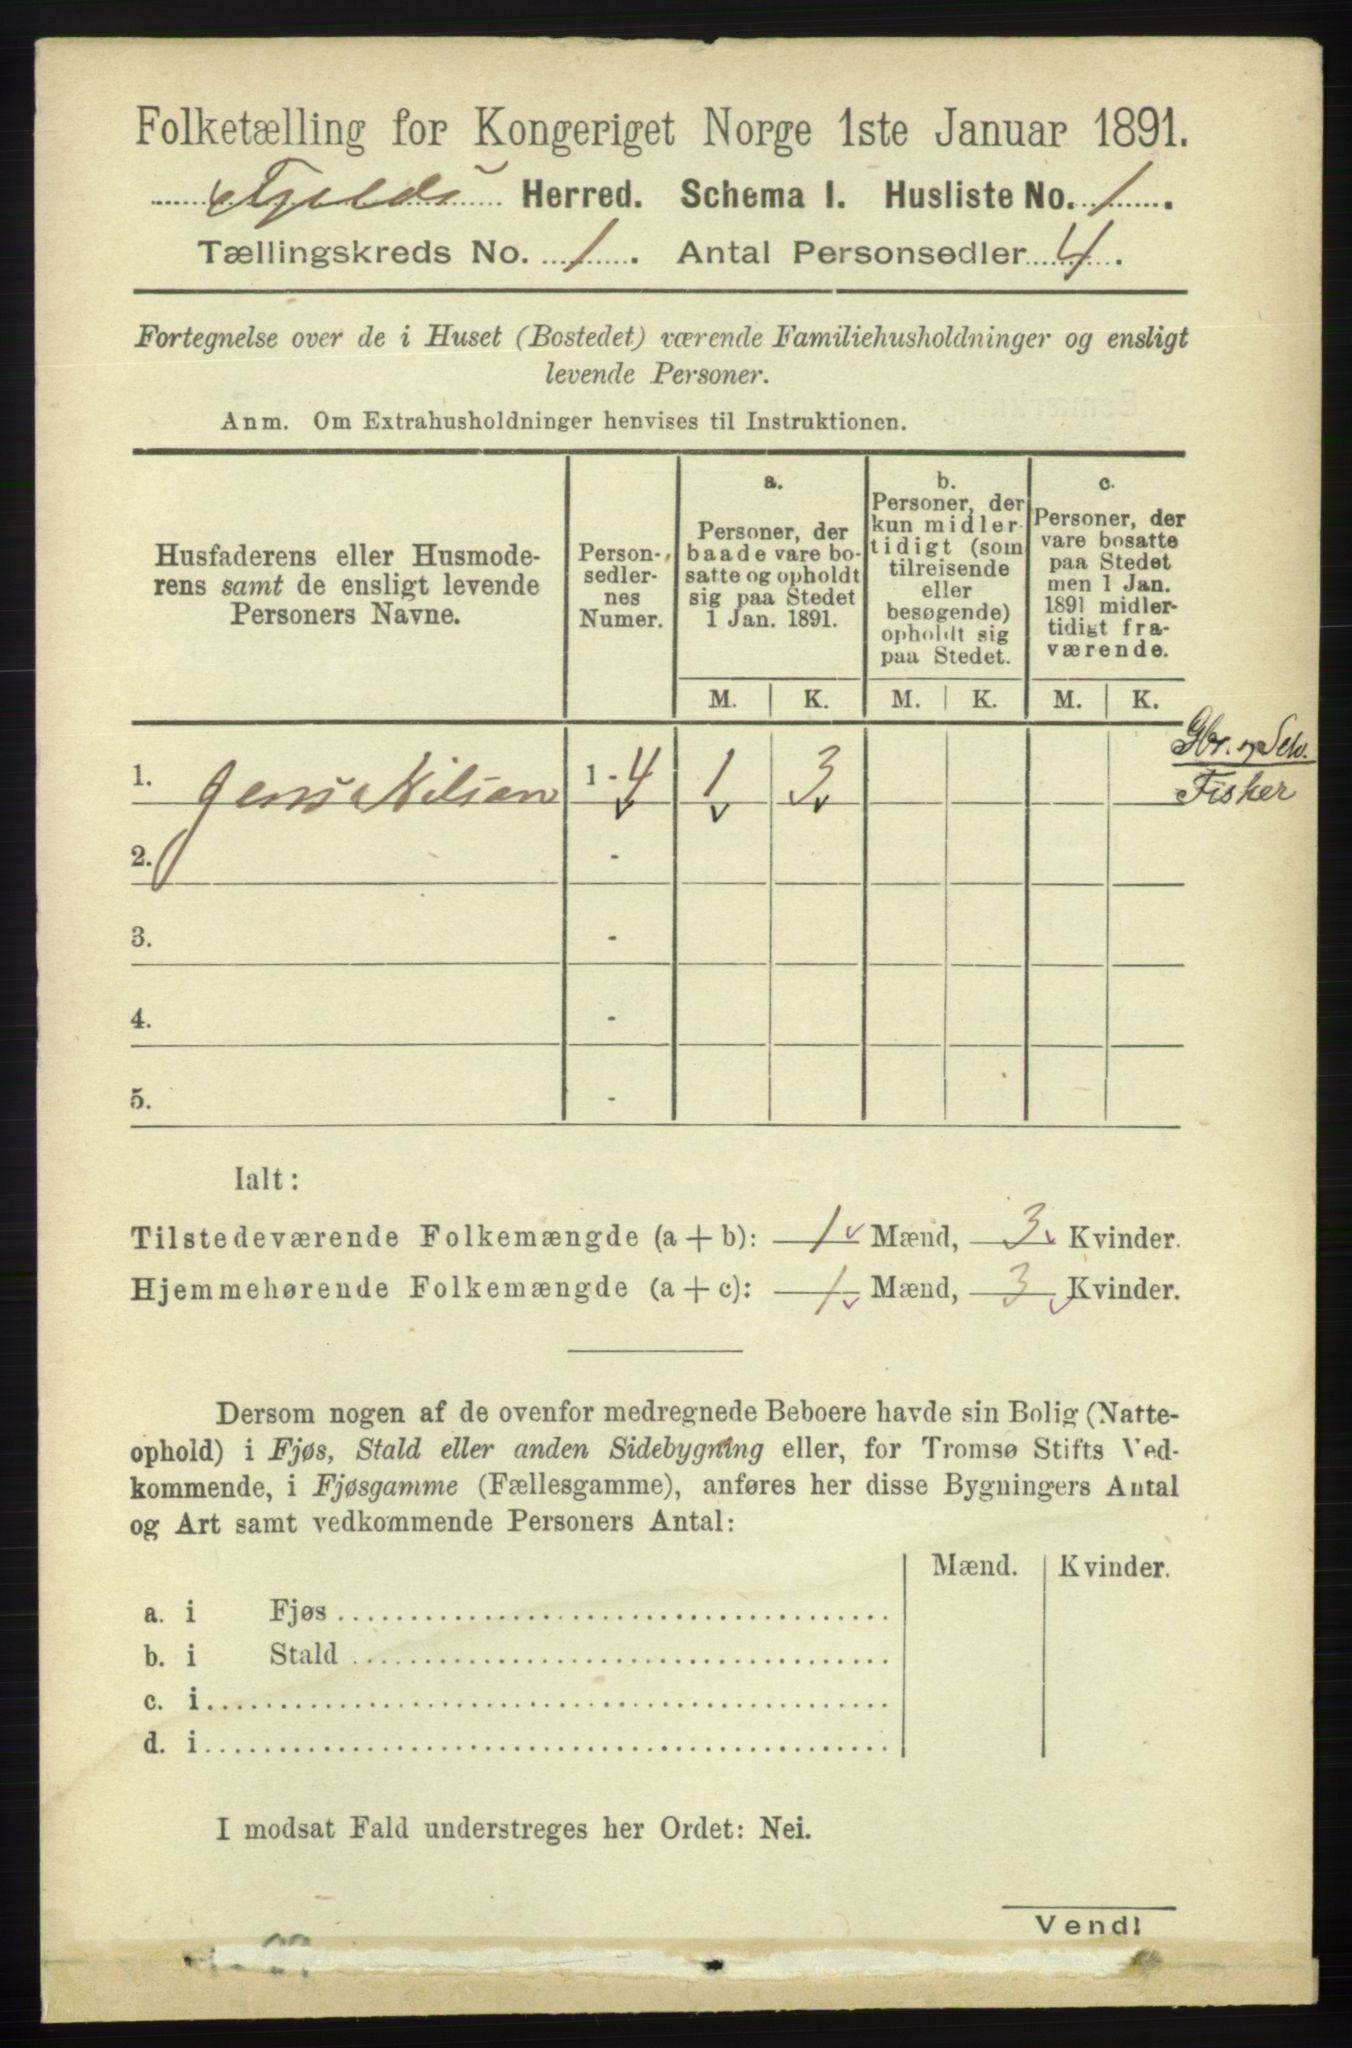 Folketælling for Kongeriget Norge 1ste Januar 1891.
Fjelds Herred. Schema I. Husliste No. 1.
Tællingskreds No. 1. Antal Personsedler 4.
Fortegnelse over de i Huset (Bostedet) værende Familiehusholdninger og ensligt
levende Personer.
Anm. Om Extrahusholdninger henvises til Instruktionen.
Husfaderens eller Husmode-
rens samt de ensligt levende
Personers Navne.
Person-
sedler-
nes
Numer.
a.
Personer, der
baade vare bo-
satte og opholdt
sig paa Stedet
1 Jan. 1891.
b.
Personer, der
kun midler-
tidigt (som
tilreisende
eller
besøgende)
opholdt sig
paa Stedet.
c.
Personer, der
vare bosatte
paa Stedet
men 1 Jan.
1891 midler-
tidigt fra-
værende.
M. K. M. K. M. K.
1. Jens Nilsen 1 - 4 1 3
Gbr. og Selv.
Fisker
2. -
3. -
4. -
5. -
Ialt:
Tilstedeværende Folkemængde (a + b): 1 Mænd, 3 Kvinder.
Hjemmehørende Folkemængde (a + c): 1 Mænd, 3 Kvinder.
Dersom nogen af de ovenfor medregnede Beboere havde sin Bolig (Natte-
ophold) i Fjøs, Stald eller anden Sidebygning eller, for Tromsø Stifts Ved-
kommende, i Fjøsgamme (Fællesgamme), anføres her disse Bygningers Antal
og Art samt vedkommende Personers Antal:
Mænd. Kvinder.
a. i Fjøs
b. i Stald
c. i
d. i
I modsat Fald understreges her Ordet: Nei.
Vend!